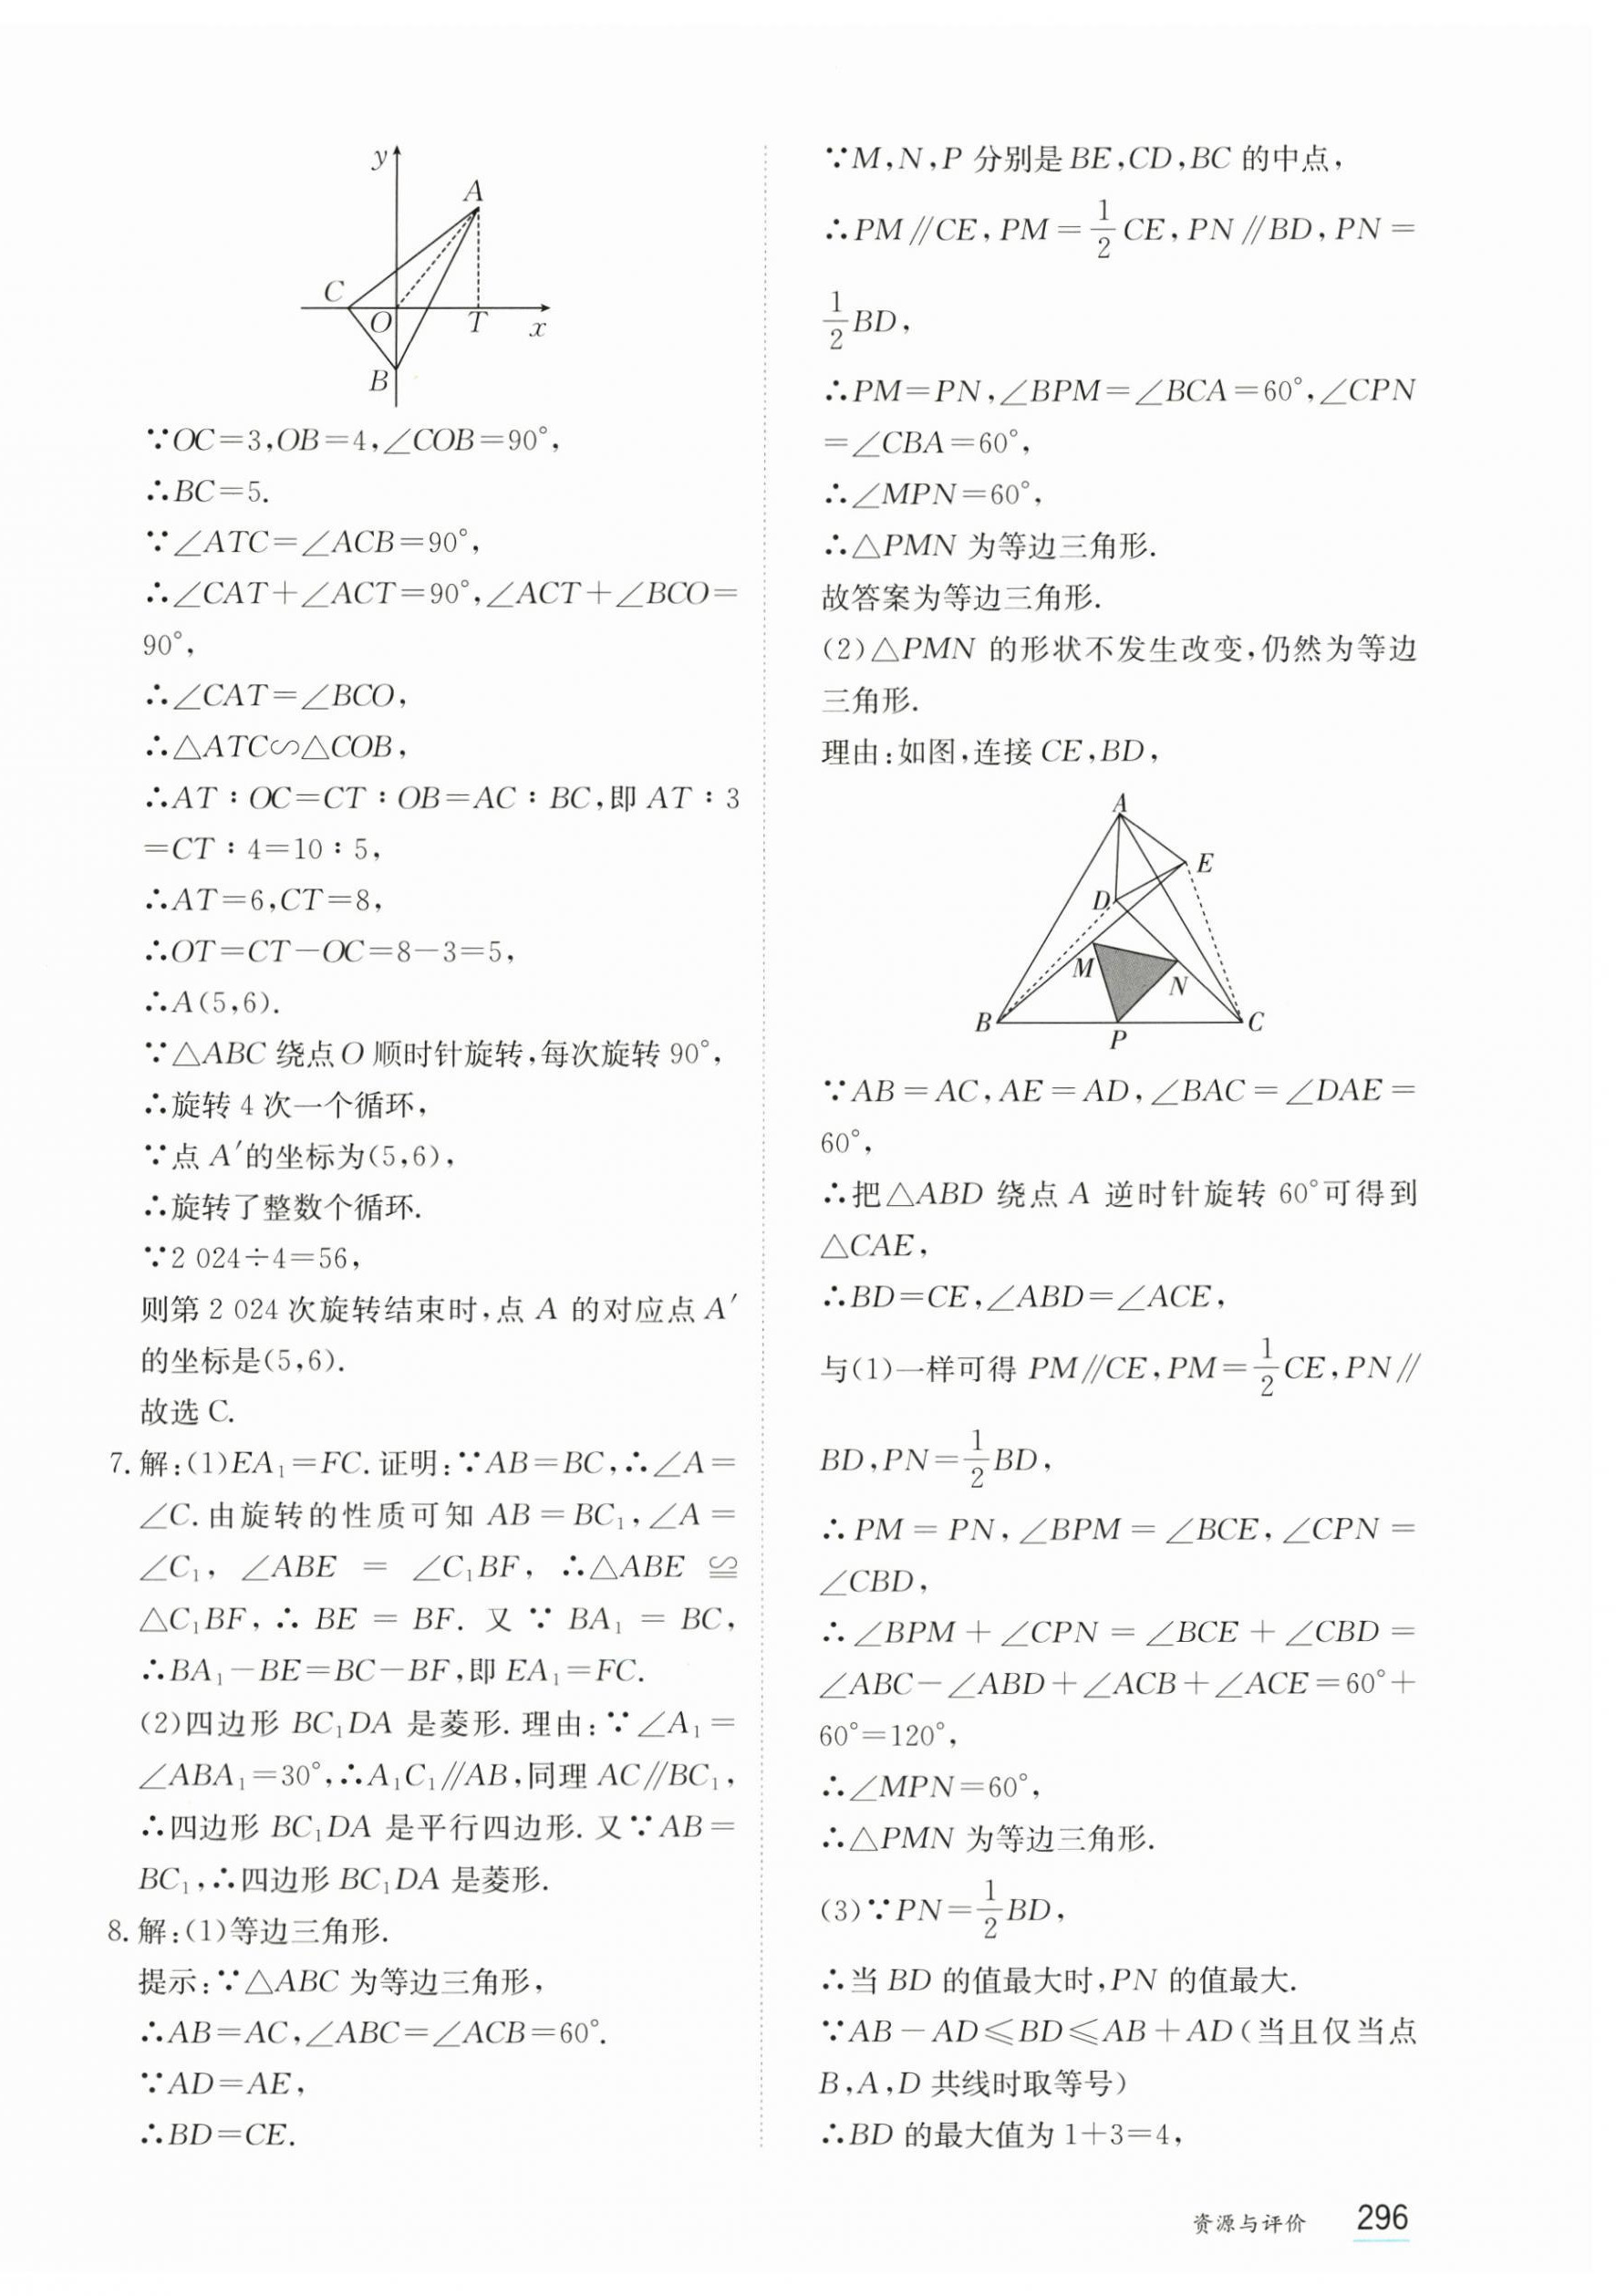 y
A
C
O
T
x
B
∵OC=3,OB=4,∠COB=90°,
∴BC=5.
∵∠ATC=∠ACB=90°,
∴∠CAT+∠ACT=90°,∠ACT+∠BCO=
90°,
∴∠CAT=∠BCO,
∴△ATC∽△COB,
∴AT∶OC=CT∶OB=AC∶BC,即 AT∶3
=CT∶4=10∶5,
∴AT=6,CT=8,
∴OT=CT-OC=8-3=5,
∴A(5,6).
∵△ABC 绕点O 顺时针旋转,每次旋转 90°,
∴旋转 4 次一个循环,
∵点 A′的坐标为(5,6),
∴旋转了整数个循环.
∵2 024÷4=56,
则第 2 024 次旋转结束时,点 A 的对应点 A′
的坐标是(5,6).
故选 C.
7. 解:(1)EA₁=FC. 证明:∵AB=BC,∴∠A=
∠C. 由旋转的性质可知 AB=BC₁,∠A=
∠C₁, ∠ABE = ∠C₁BF, ∴△ABE ≌
△C₁BF,∴ BE = BF. 又 ∵ BA₁ = BC,
∴BA₁-BE=BC-BF,即 EA₁=FC.
(2)四边形 BC₁DA 是菱形. 理由:∵∠A₁=
∠ABA₁=30°,∴A₁C₁∥AB,同理 AC∥BC₁,
∴四边形 BC₁DA 是平行四边形. 又∵AB=
BC₁,∴四边形 BC₁DA 是菱形.
8. 解:(1)等边三角形.
提示:∵△ABC 为等边三角形,
∴AB=AC,∠ABC=∠ACB=60°.
∵AD=AE,
∴BD=CE.
∵M,N,P 分别是 BE,CD,BC 的中点,
∴PM∥CE,PM=1/2 CE,PN∥BD,PN=
1/2 BD,
∴PM=PN,∠BPM=∠BCA=60°,∠CPN
=∠CBA=60°,
∴∠MPN=60°,
∴△PMN 为等边三角形.
故答案为等边三角形.
(2)△PMN 的形状不发生改变,仍然为等边
三角形.
理由:如图,连接 CE,BD,
A
E
D
M
N
B
P
C
∵AB=AC,AE=AD,∠BAC=∠DAE=
60°,
∴把△ABD 绕点 A 逆时针旋转 60°可得到
△CAE,
∴BD=CE,∠ABD=∠ACE,
与(1)一样可得 PM∥CE,PM=1/2 CE,PN∥
BD,PN=1/2 BD,
∴PM=PN,∠BPM=∠BCE,∠CPN=
∠CBD,
∴∠BPM+∠CPN=∠BCE+∠CBD=
∠ABC-∠ABD+∠ACB+∠ACE=60°+
60°=120°,
∴∠MPN=60°,
∴△PMN 为等边三角形.
(3)∵PN=1/2 BD,
∴当 BD 的值最大时,PN 的值最大.
∵AB-AD⩽BD⩽AB+AD(当且仅当点
B,A,D 共线时取等号)
∴BD 的最大值为 1+3=4,
资源与评价 296